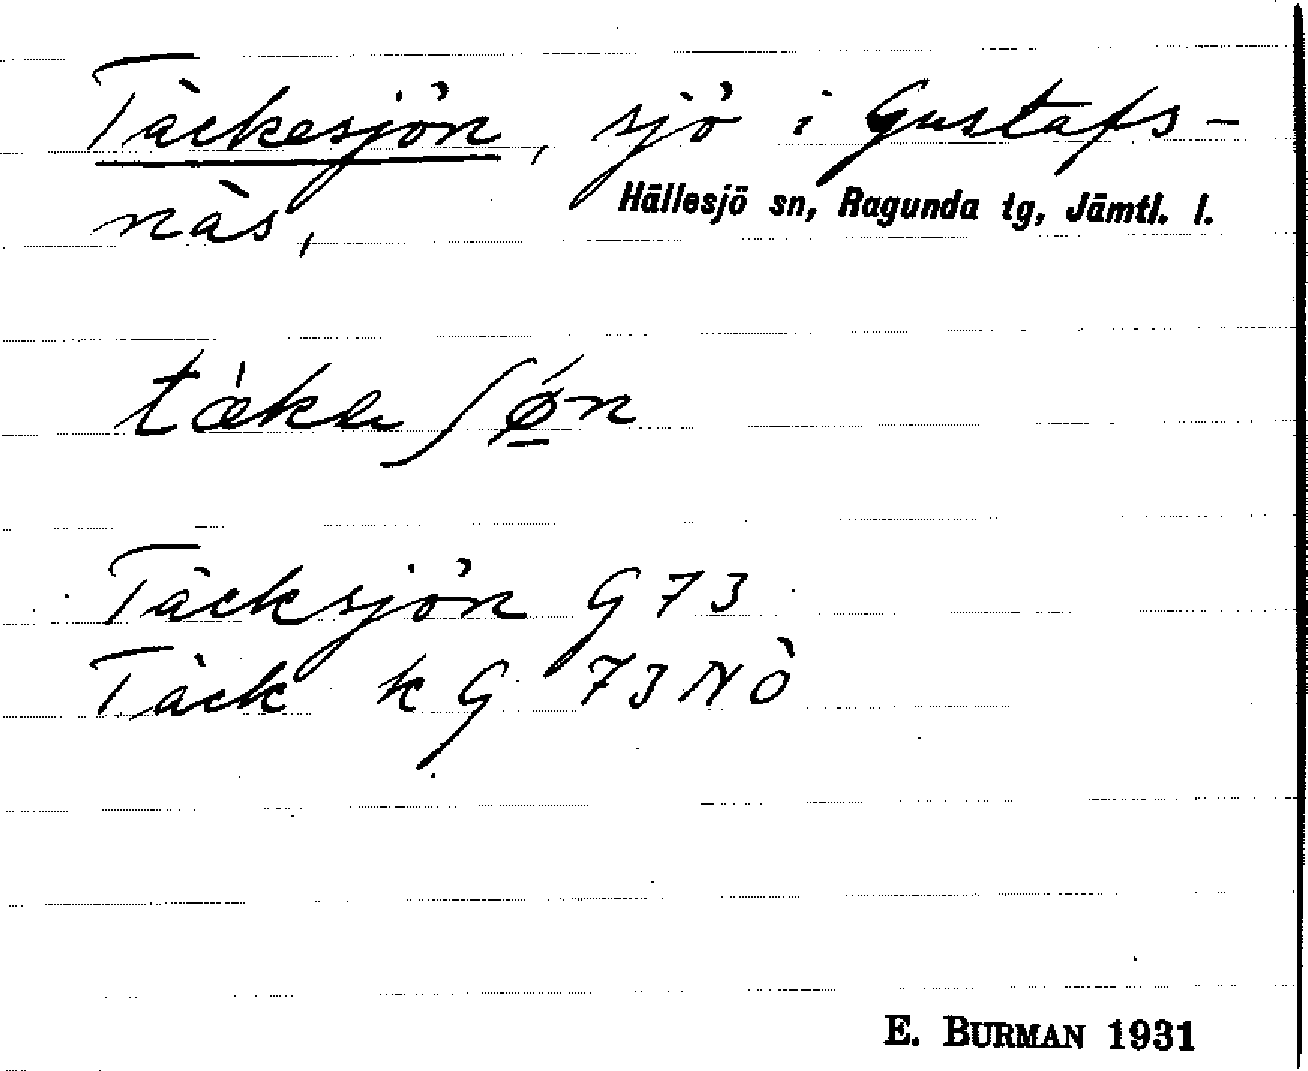 Täckesjön, sjö i Gustafs-
näs,
Hällesjö sn, Ragunda tg, Jämtl. l.
Täcksjön G 73
Täck k G 73 NÖ
E. BURMAN 1931